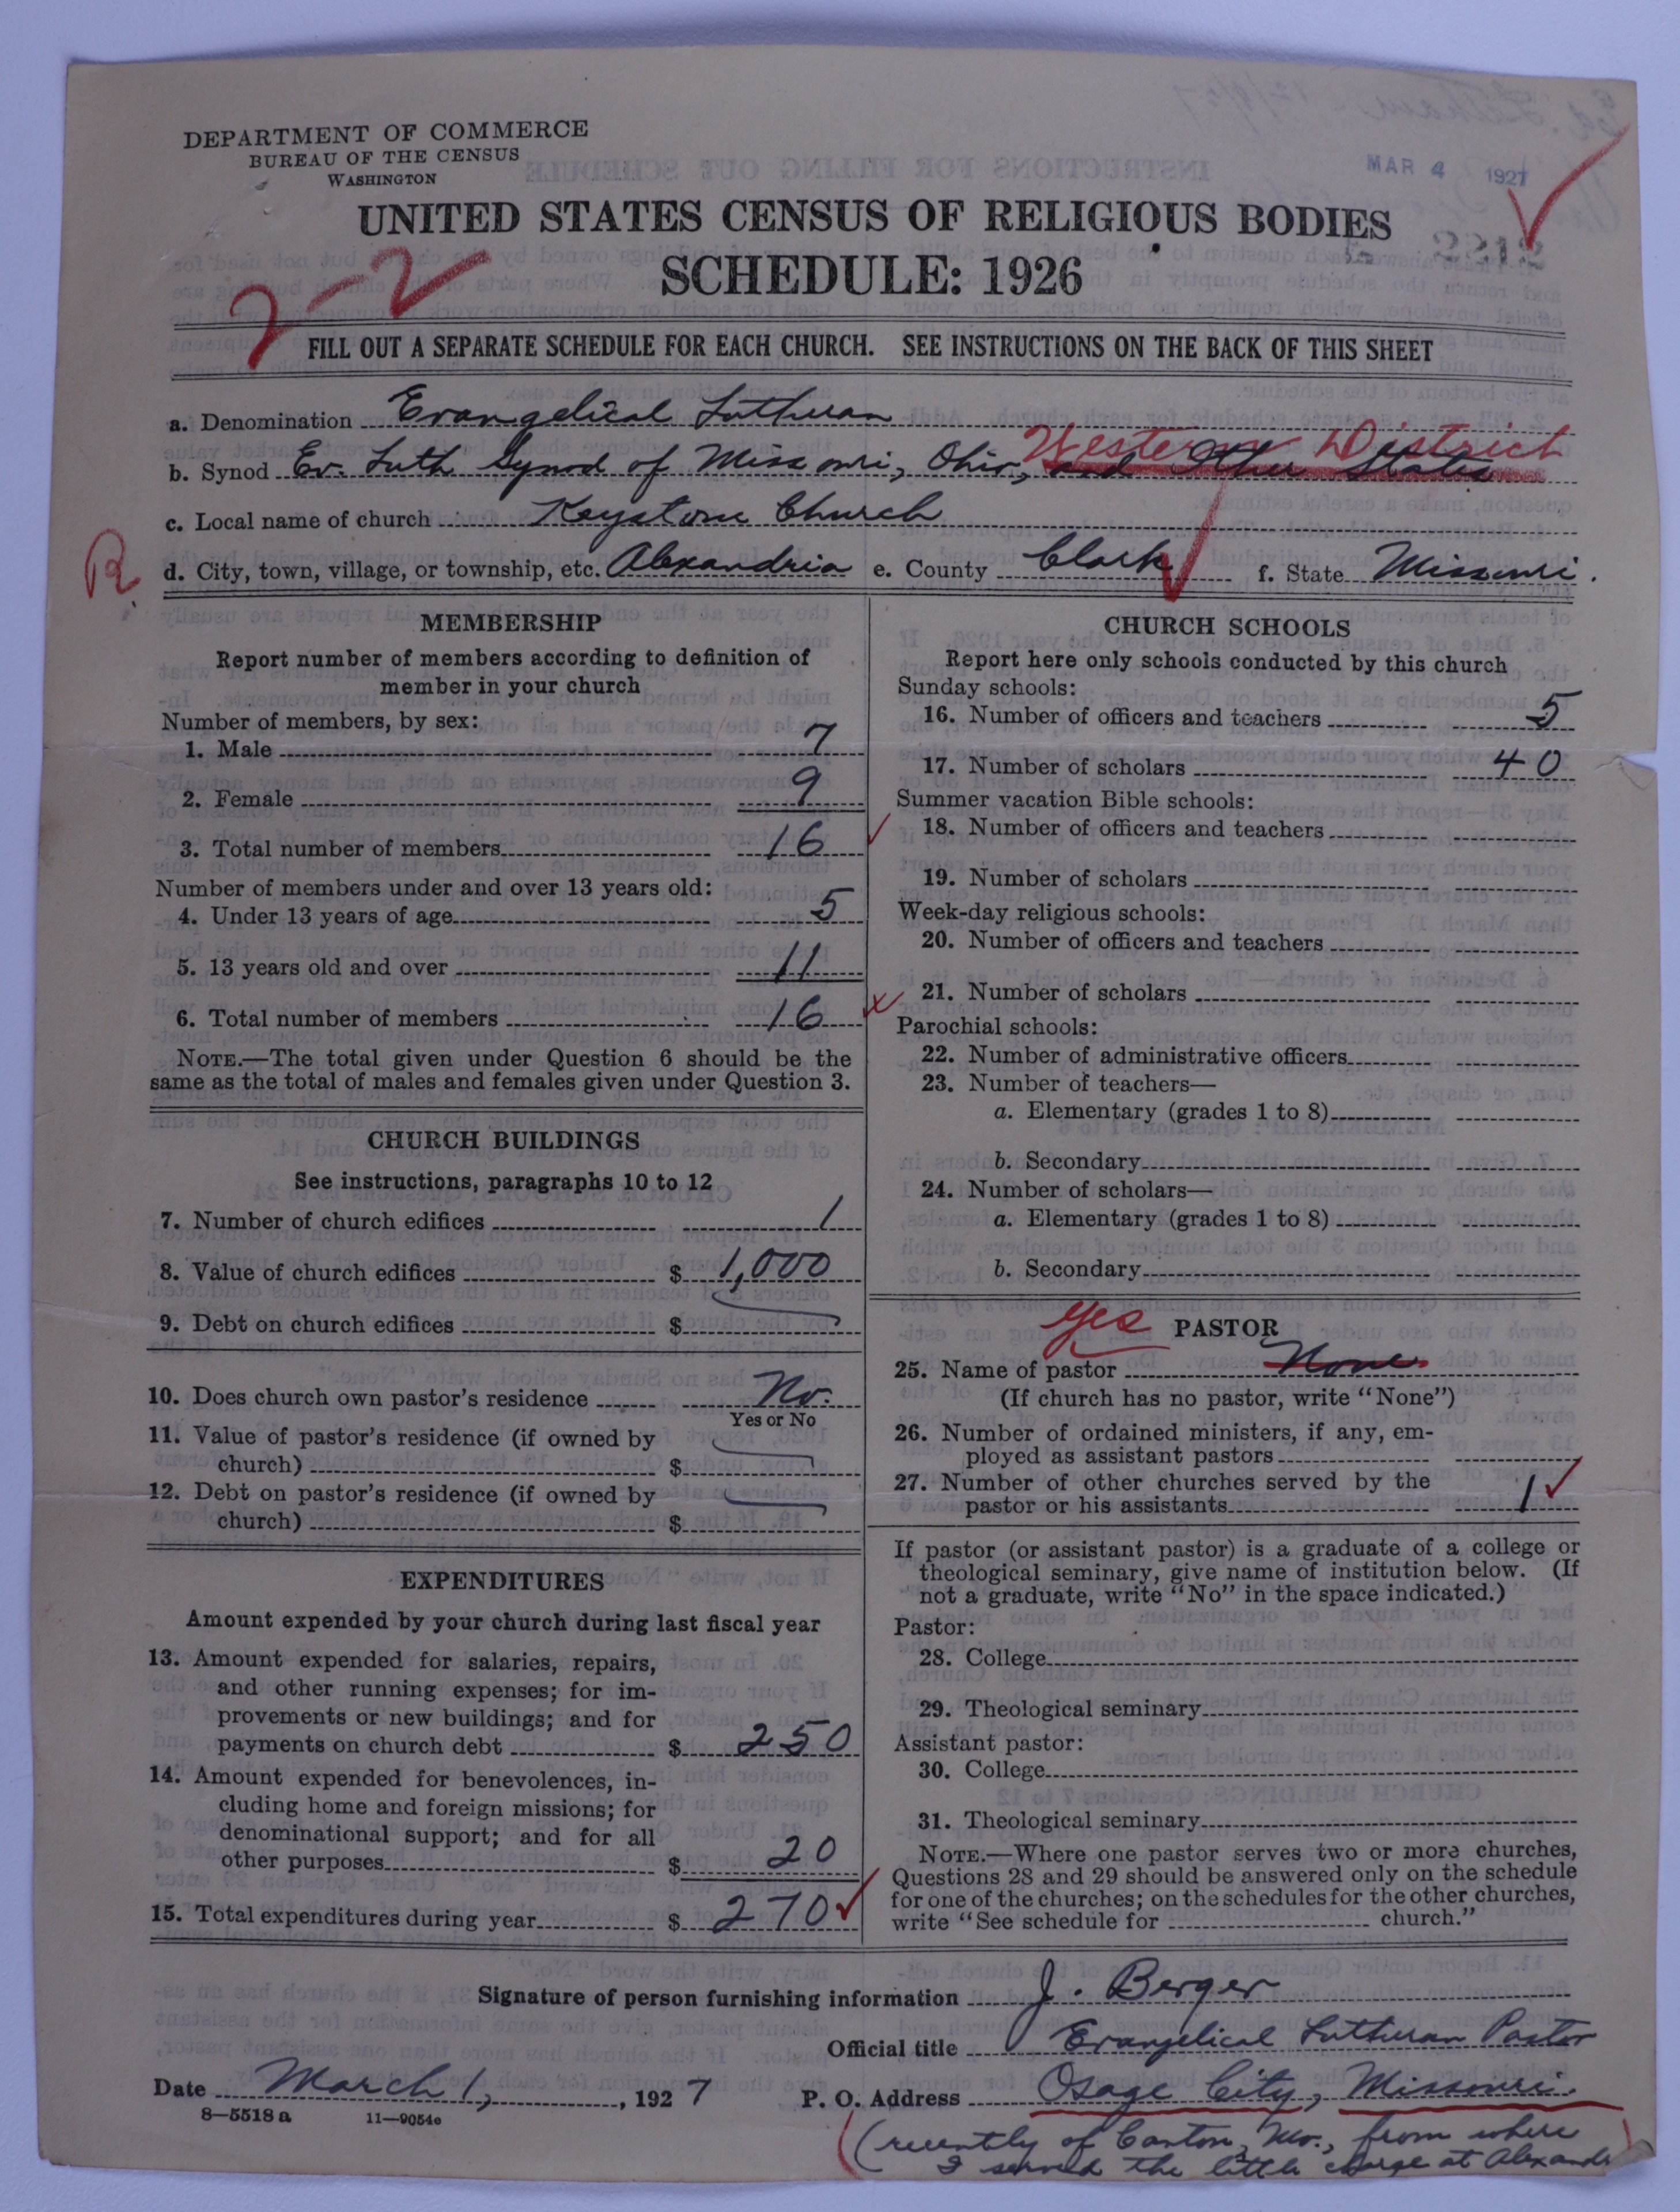 DEPARTMENT OF COMMERCE
BUREAU OF THE CENSUS
WASHINGTON
MAR 4 1927
UNITED STATES CENSUS OF RELIGIOUS BODIES
2212
SCHEDULE: 1926
2-2
FILL OUT A SEPARATE SCHEDULE FOR EACH CHURCH. SEE INSTRUCTIONS ON THE BACK OF THIS SHEET
a. Denomination Evangelical Lutheran
Western District
b. Synod Ev. Luth Synod of Missouri, Ohio, and Other States
c. Local name of church Keystone Church
R d. City, town, village, or township, etc. Alexandria e. County Clark f. State Missouri.
MEMBERSHIP
Report number of members according to definition of
member in your church
Number of members, by sex:
1. Male 7
2. Female 9
3. Total number of members 16
Number of members under and over 13 years old:
4. Under 13 years of age 5
5. 13 years old and over 11
6. Total number of members 16
NOTE.—The total given under Question 6 should be the
same as the total of males and females given under Question 3.
CHURCH BUILDINGS
See instructions, paragraphs 10 to 12
7. Number of church edifices 1
8. Value of church edifices $ 1,000
9. Debt on church edifices $
10. Does church own pastor's residence No.
Yes or No
11. Value of pastor's residence (if owned by
church) $
12. Debt on pastor's residence (if owned by
church) $
EXPENDITURES
Amount expended by your church during last fiscal year
13. Amount expended for salaries, repairs,
and other running expenses; for im-
provements or new buildings; and for
payments on church debt $ 250
14. Amount expended for benevolences, in-
cluding home and foreign missions; for
denominational support; and for all
other purposes $ 20
15. Total expenditures during year $ 270
CHURCH SCHOOLS
Report here only schools conducted by this church
Sunday schools:
16. Number of officers and teachers 5
17. Number of scholars 40
Summer vacation Bible schools:
18. Number of officers and teachers
19. Number of scholars
Week-day religious schools:
20. Number of officers and teachers
21. Number of scholars
Parochial schools:
22. Number of administrative officers
23. Number of teachers—
a. Elementary (grades 1 to 8)
b. Secondary
24. Number of scholars—
a. Elementary (grades 1 to 8)
b. Secondary
yes PASTOR
25. Name of pastor None
(If church has no pastor, write "None")
26. Number of ordained ministers, if any, em-
ployed as assistant pastors
27. Number of other churches served by the
pastor or his assistants 1
If pastor (or assistant pastor) is a graduate of a college or
theological seminary, give name of institution below. (If
not a graduate, write "No" in the space indicated.)
Pastor:
28. College
29. Theological seminary
Assistant pastor:
30. College
31. Theological seminary
NOTE.—Where one pastor serves two or more churches,
Questions 28 and 29 should be answered only on the schedule
for one of the churches; on the schedules for the other churches,
write "See schedule for church."
Signature of person furnishing information J. Berger
Official title Evangelical Lutheran Pastor
Date March 1, 1927 P. O. Address Osage City, Missouri.
8-5518a 11-9054e
(recently of Canton, Mo., from where
I served the little charge at Alexandr